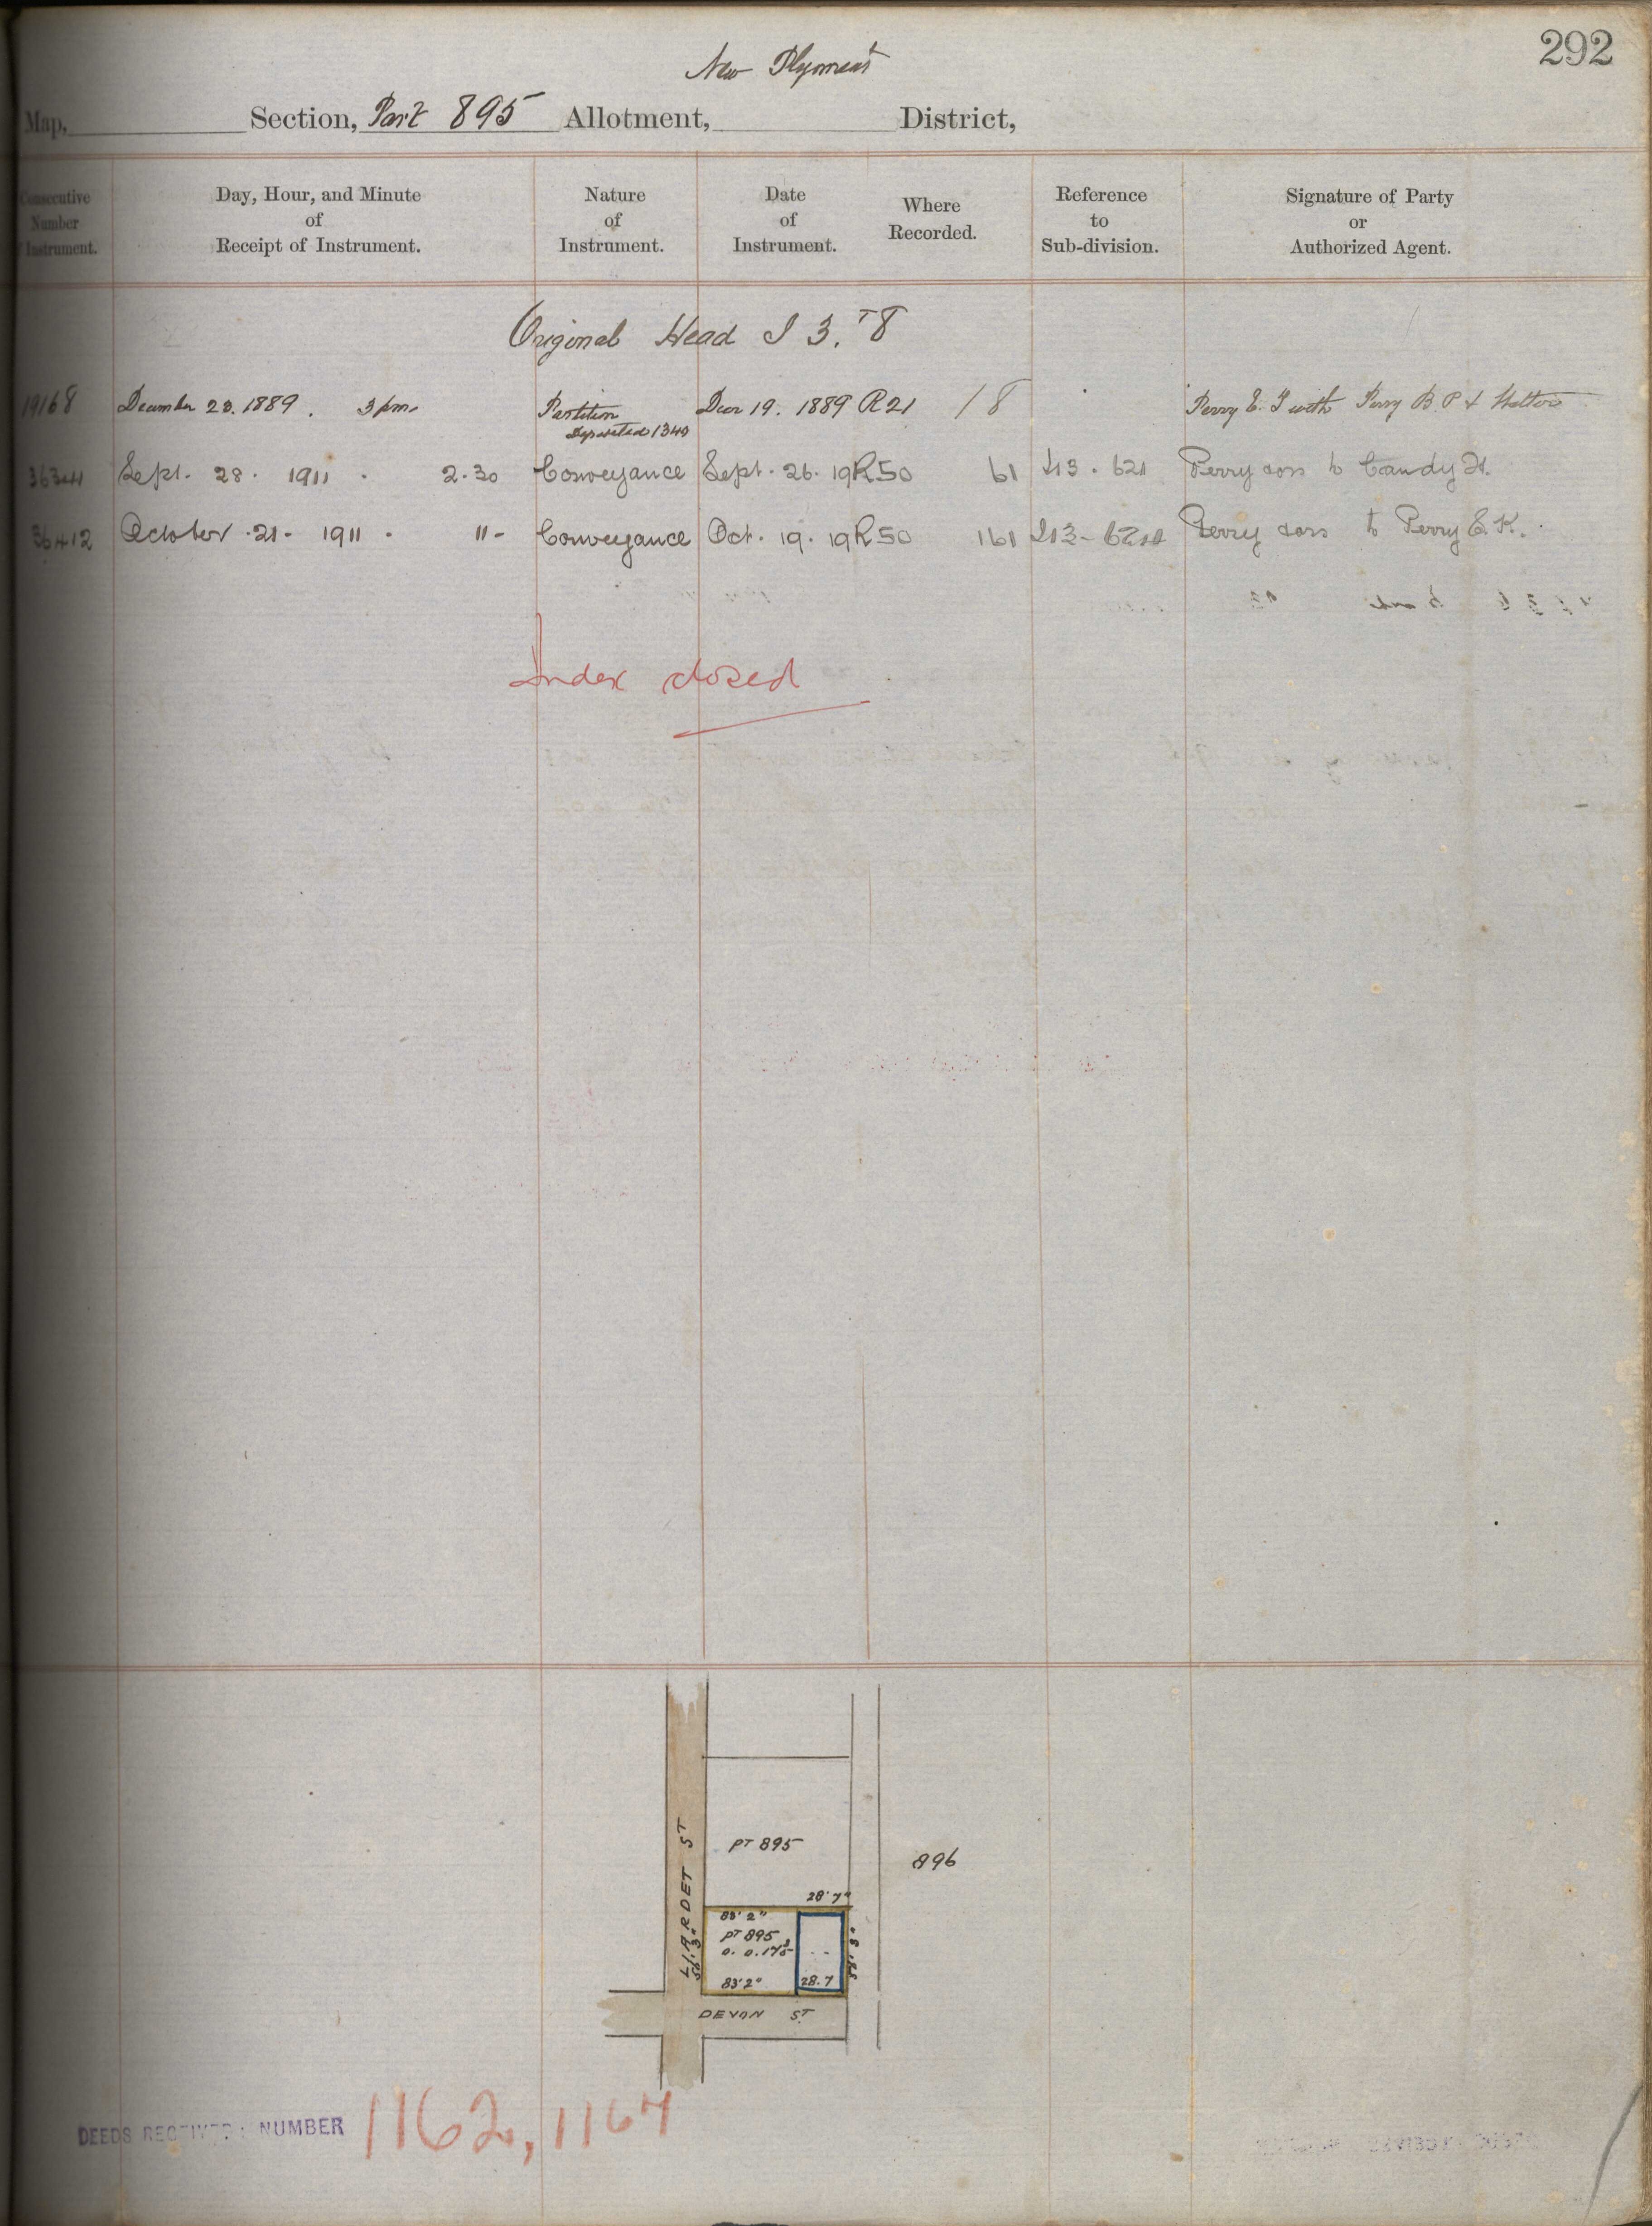 292
New Plymouth
Map, Section, Part 895 Allotment, District,
Consecutive Number Instrument.
Day, Hour, and Minute of Receipt of Instrument.
Nature of Instrument.
Date of Instrument.
Where Recorded.
Reference to Sub-division.
Signature of Party or Authorized Agent.
Original Head I 3. 78
19168 December 23. 1889. 3 pm. Partition Decr 19. 1889 R21 18 Perry E. I with Perry B. P &
Deposited 1340
36344 Sept. 28. 1911. 2.30 Conveyance Sept. 26. 19 R50 61 I13. 621 Perry & ors to Candy H.
36412 October 21. 1911. 11- Conveyance Oct. 19. 19 R50 161 I13- Perry & ors to Perry E. K.
Index closed
LIARDET ST
PT 895
896
28' 7"
83' 2"
PT 895
56' 3"
83' 2"
28.7
DEVON ST
DEEDS RECEIVED: NUMBER 1162, 1167